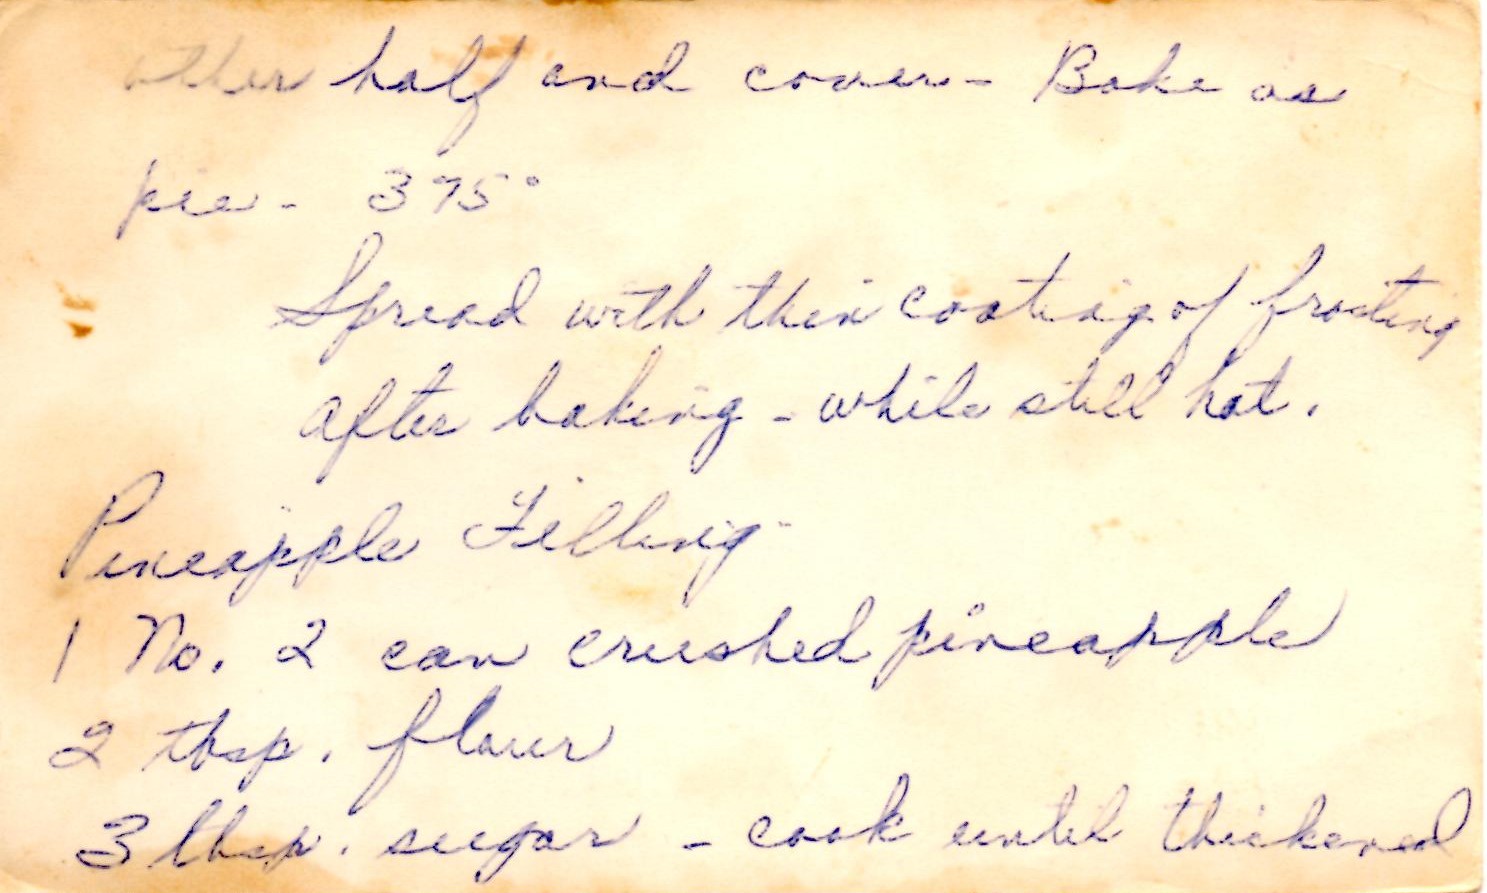 other half and cover - Bake as
pie - 375°
Spread with thin coating of frosting
after baking - while still hot.
Pineapple Filling
1 No. 2 can crushed pineapple
2 tbsp. flour
3 tbsp. sugar - cook until thickened